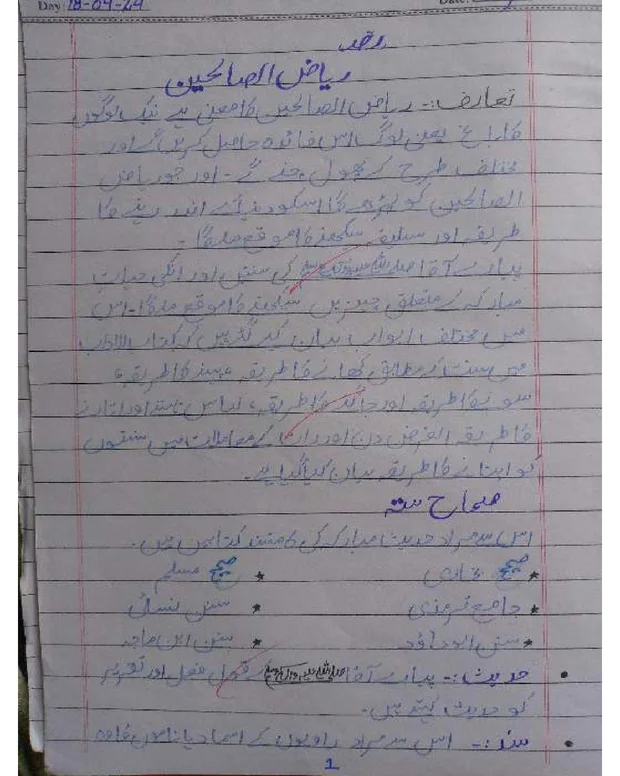 Day 18-04-24 Date:
رضہ
ریاض الصالحین
تعارف:۔ ریاض الصالحین کا معنی ہے نیک لوگوں
کا باغ یعنی لوگ اس فائدہ حاصل کریں گے اور
مختلف طرح کے پھول چنے گے۔ اور جو ریاض
الصالحین کو پڑھے گا اسکو دنیا کے اندر رہنے کا
طریقہ اور سلیقہ سیکھنے کا موقع ملے گا۔
پیارے آقا صلی اللہ علیہ وسلم کی سنتیں اور انکی حیات
مبارکہ کے متعلق چیزیں سیکھنے کا موقع ملے گا۔ اس
میں مختلف ابواب بیان کیے گئے ہیں کہ کتاب الادب
میں سنت کے مطابق کھانے کا طریقہ، پینے کا طریقہ،
سونے کا طریقہ اور جاگنے کا طریقہ، لباس پہننے اور اتارنے
کا طریقہ الغرض دن اور رات کے معاملات میں سنتوں
کو اپنانے کا طریقہ بیان کیا گیا ہے۔
صحاح ستہ
اس سے مراد حدیث مبارکہ کی مستند کتابیں ہیں۔
* صحیح بخاری * صحیح مسلم
* جامع ترمذی * سنن نسائی
* سنن ابوداؤد * سنن ابن ماجہ
• حدیث:۔ پیارے آقا صلی اللہ علیہ وآلہ وسلم کے قول فعل اور تقریر
کو حدیث کہتے ہیں۔
• سند:۔ اس سے مراد راویوں کے اسماء یا ناموں کا وہ
1